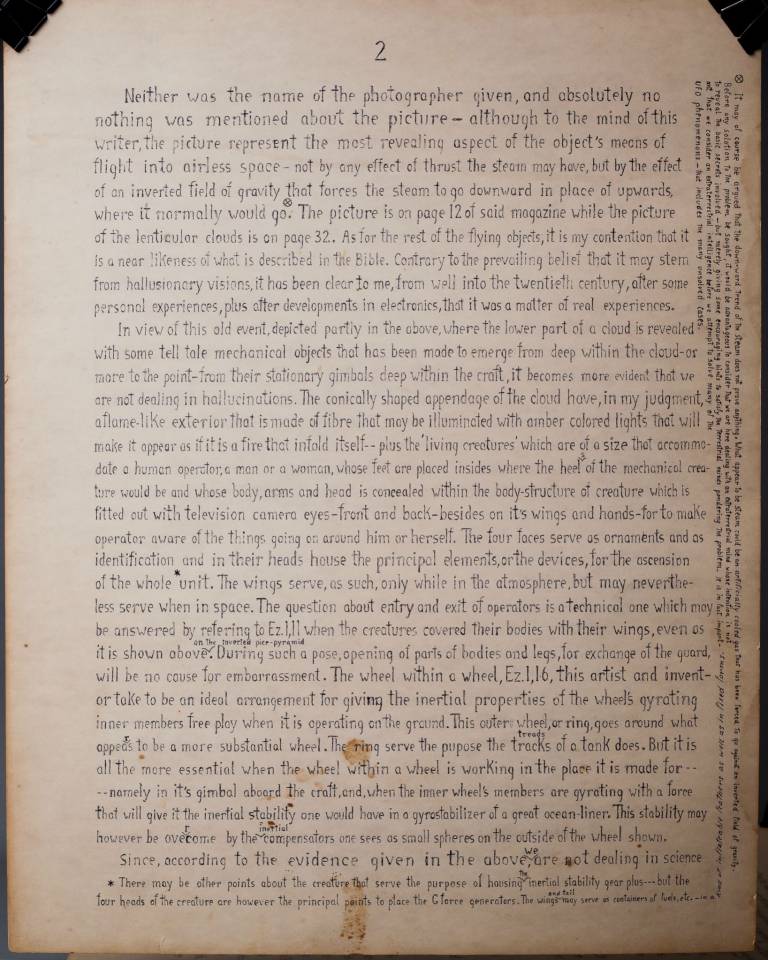 2
Neither was the name of the photographer given, and absolutely no
nothing was mentioned about the picture – although to the mind of this
writer, the picture represent the most revealing aspect of the object's means of
flight into airless space – not by any effect of thrust the steam may have, but by the effect
of an inverted field of gravity that forces the steam to go downward in place of upwards,
where it normally would go.⊗ The picture is on page 12 of said magazine while the picture
of the lenticular clouds is on page 32. As for the rest of the flying objects, it is my contention that it
is a near likeness of what is described in the Bible. Contrary to the prevailing belief that it may stem
from hallusionary visions, it has been clear to me, from well into the twentieth century, after some
personal experiences, plus after developments in electronics, that it was a matter of real experiences.
In view of this old event, depicted partly in the above, where the lower part of a cloud is revealed
with some tell tale mechanical objects that has been made to emerge from deep within the cloud-or
more to the point-from their stationary gimbals deep within the craft, it becomes more evident that we
are not dealing in hallucinations. The conically shaped appendage of the cloud have, in my judgment,
a flame-like exterior that is made of fibre that may be illuminated with amber colored lights that will
make it appear as if it is a fire that infold itself-- plus the 'living creatures' which are of a size that accommo-
date a human operator, a man or a woman, whose feet are placed insides where the heel's of the mechanical crea-
ture would be and whose body, arms and head is concealed within the body-structure of creature which is
fitted out with television camera eyes-front and back-besides on it's wings and hands-for to make
operator aware of the things going on around him or herself. The four faces serve as ornaments and as
identification and in their heads house the principal elements, or the devices, for the ascension
of the whole* unit. The wings serve, as such, only while in the atmosphere, but may neverthe-
less serve when in space. The question about entry and exit of operators is a technical one which may
be answered by refering to Ez.1,11 when the creatures covered their bodies with their wings, even as
on the inverted pice-pyramid
it is shown above. During such a pose, opening of parts of bodies and legs, for exchange of the guard,
will be no cause for embarrassment. The wheel within a wheel, Ez.1,16, this artist and invent-
or take to be an ideal arrangement for giving the inertial properties of the wheel's gyrating
inner members free play when it is operating on the ground. This outer wheel, or ring, goes around what
appears to be a more substantial wheel. The ring serve the pupose the tracks treads of a tank does. But it is
all the more essential when the wheel within a wheel is working in the place it is made for --
--namely in it's gimbal aboard the craft, and, when the inner wheel's members are gyrating with a force
that will give it the inertial stability one would have in a gyrostabilizer of a great ocean-liner. This stability may
however be overcome by the inertial compensators one sees as small spheres on the outside of the wheel shown.
Since, according to the evidence given in the above, we are not dealing in science
* There may be other points about the creature that serve the purpose of housing the inertial stability gear plus--- but the
four heads of the creature are however the principal points to place the G force generators. The wings and tail may serve as containers of fuels, etc. –
⊗ It may of course be argued that the downward trend of the steam does not prove anything. What appear to be steam could be an artificially cooled gas that has been forced to go against an inverted field of gravity.
Before any solution to the problem be sought, it would be advantageous to consider that we are here dealing with an extraterrestrial mind whose intention is not
to reveal the basic secrets involved – but merely giving some encouraging hints to satisfy the terrestrial minds pondering the problem. It is in fact import-
ant that we consider an extraterrestrial intelligence before we attempt to solve many of the
UFO phenomenons – that includes the many unsolved cases.